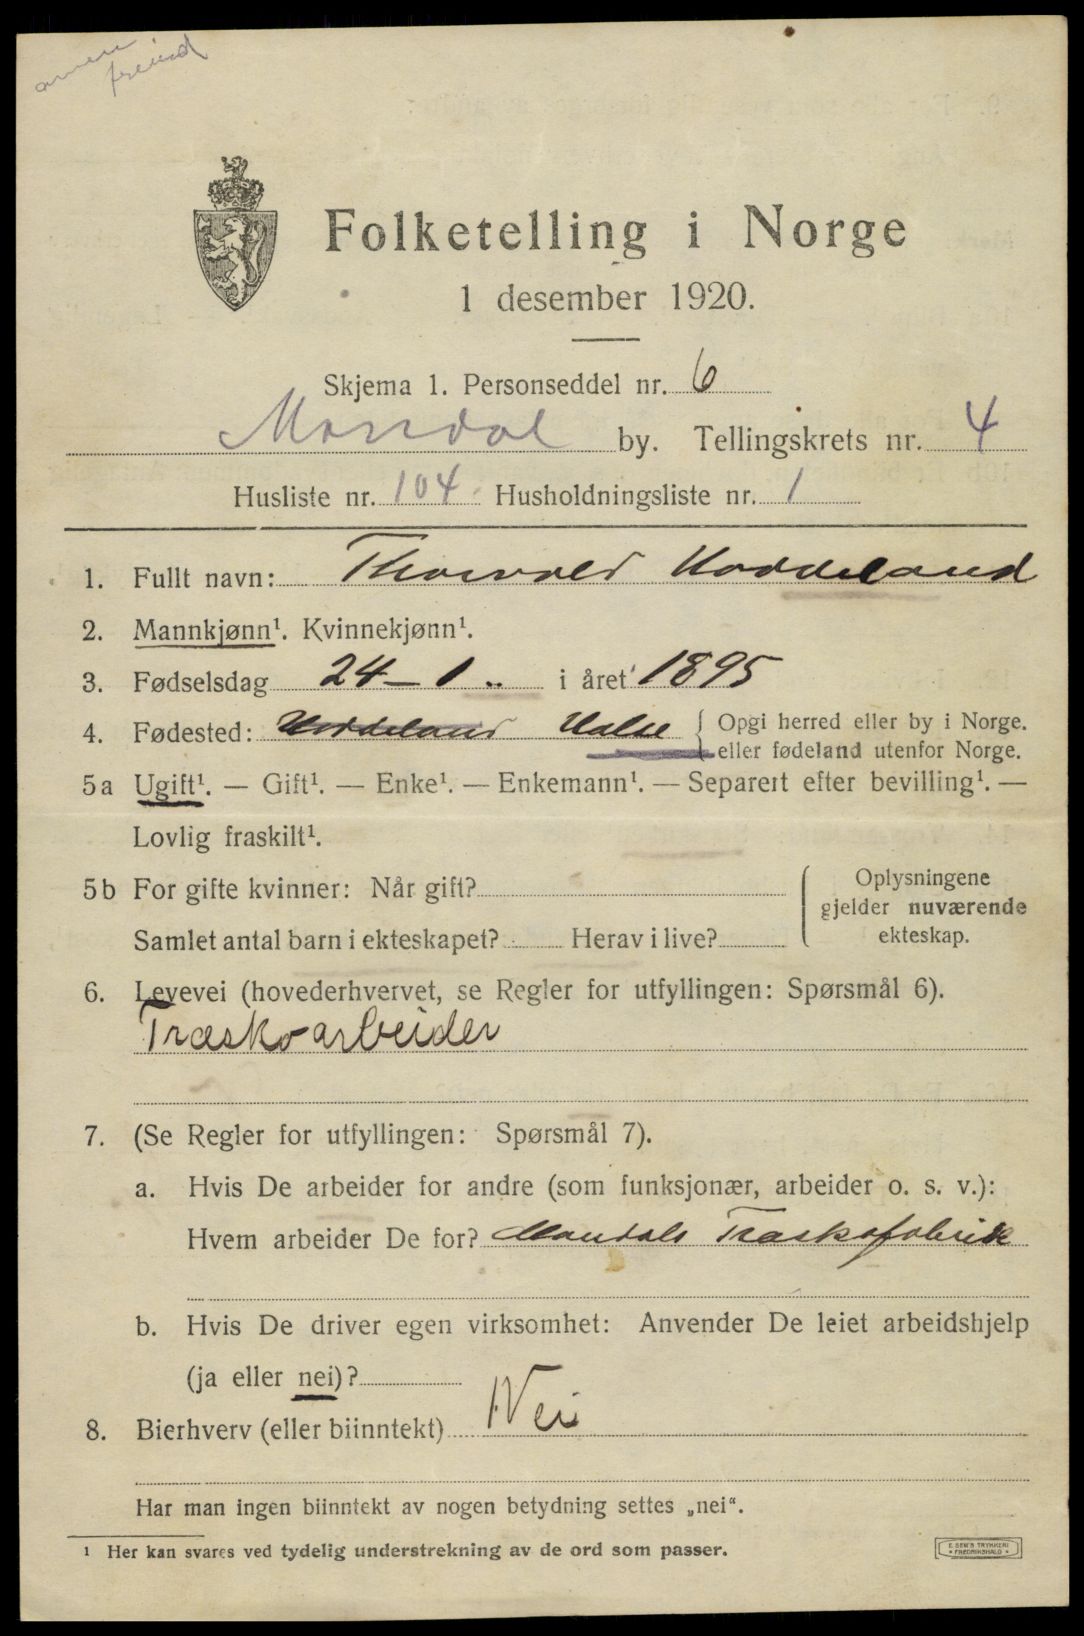 Folketelling i Norge
1 desember 1920.
Skjema 1. Personseddel nr. 6
Mandal by. Tellingskrets nr. 4
Husliste nr. 104 Husholdningsliste nr. 1
1. Fullt navn: Thorvald Hoddeland
2. Mannkjønn¹. Kvinnekjønn¹.
3. Fødselsdag 24 – 1 i året 1895
4. Fødested: Hoddeland Halse { Opgi herred eller by i Norge.
eller fødeland utenfor Norge.
5a Ugift¹. — Gift¹. — Enke¹. — Enkemann¹. — Separert efter bevilling¹. —
Lovlig fraskilt¹.
5b For gifte kvinner: Når gift?
Samlet antal barn i ekteskapet? Herav i live?
Oplysningene
gjelder nuværende
ekteskap.
6. Levevei (hovederhvervet, se Regler for utfyllingen: Spørsmål 6).
Træskoarbeider
7. (Se Regler for utfyllingen: Spørsmål 7).
a. Hvis De arbeider for andre (som funksjonær, arbeider o. s. v.):
Hvem arbeider De for? Mandals Træskofabrik
b. Hvis De driver egen virksomhet: Anvender De leiet arbeidshjelp
(ja eller nei)?
8. Bierhverv (eller biinntekt) Nei
Har man ingen biinntekt av nogen betydning settes „nei“.
¹ Her kan svares ved tydelig understrekning av de ord som passer.
E. SEM'S TRYKKERI
• FREDRIKSHALD •